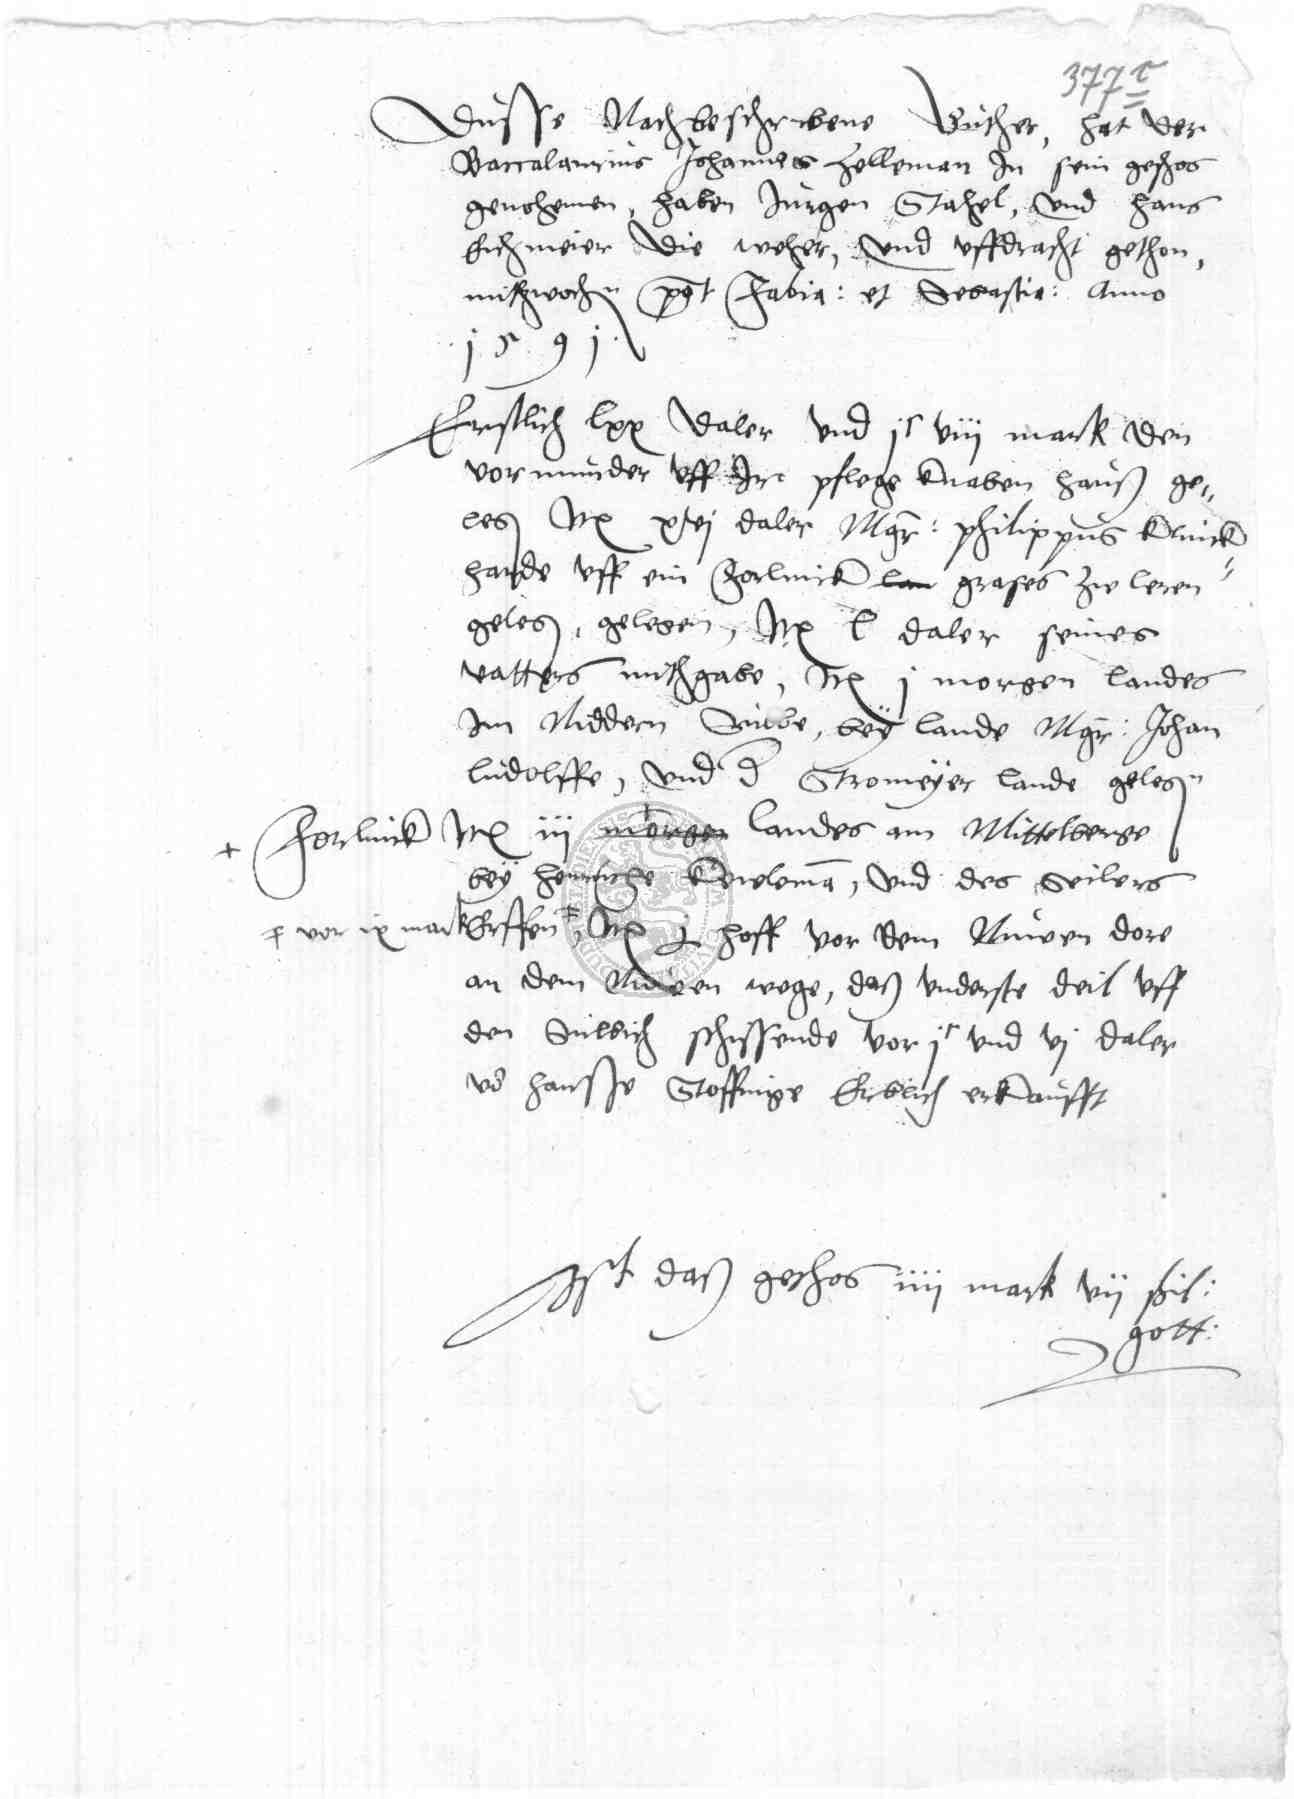 377 r
Dusse Nachbeschrebene Guther, hat der
Baccalaurius Johannes Helleman In sein geschos
genohemen, haben Jurgen Stahel, und Hans
Eichmeier die weher, und uffdracht gethon,
mithwochen post Fabia: et Sebastia: Anno
1591
Erstlich lxx daler und jc viij mark den
vormunder uff Ire pflege knaben hauß ge„
leg Itz xvj daler Mgr: philippus Klinck„
harde uff ein Forlinck lan grases zu leren
geleg, gelegen, Itz l daler seines
vatters mithgabe, Itz j morgen landes
Im Niddern , bey lande Mgr: Johan
Ludolffe, und d Stromeyer lande geleg
+ Forlinck Itz iij morgen landes am Mittelberge
bey Henriche , und des Seilers
vor ix mark Erffen, Itz j hoff vor dem Nuwen dore
an dem Nuwen wege, daß underste deil uff
den schissende vor jc und vj daler
vo hansse Stoffrige Erblich erkaufft
Ist daß geschos iiij mark vij schil:
gott: